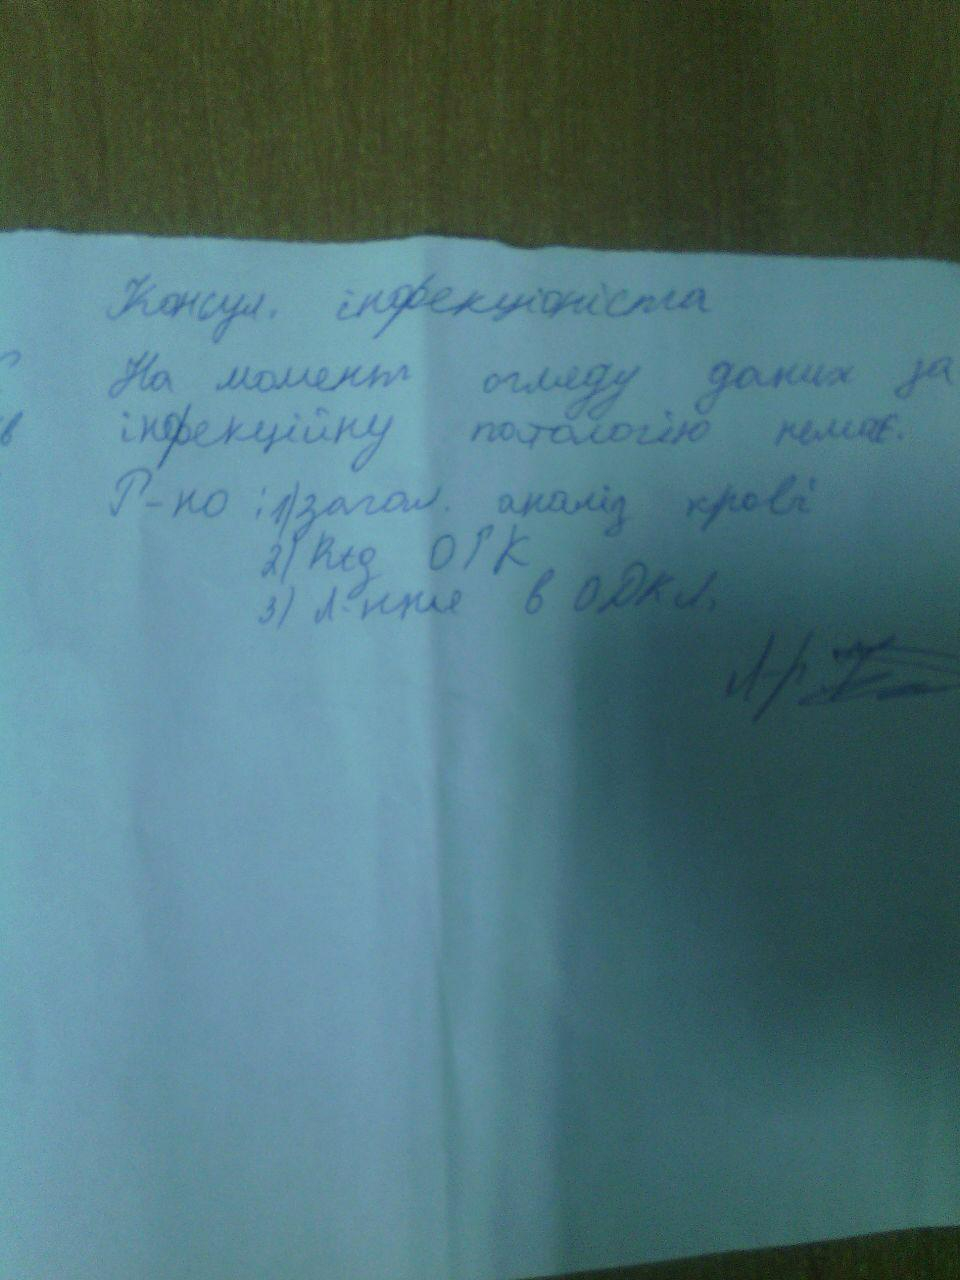 Консул. інфекціоніста
На момент огляду даних за
в інфекційну патологію немає.
Р-но: 1) загал. аналіз крові
2) Rtg ОГК
3) Л-ння в ОДКЛ.
Л-р